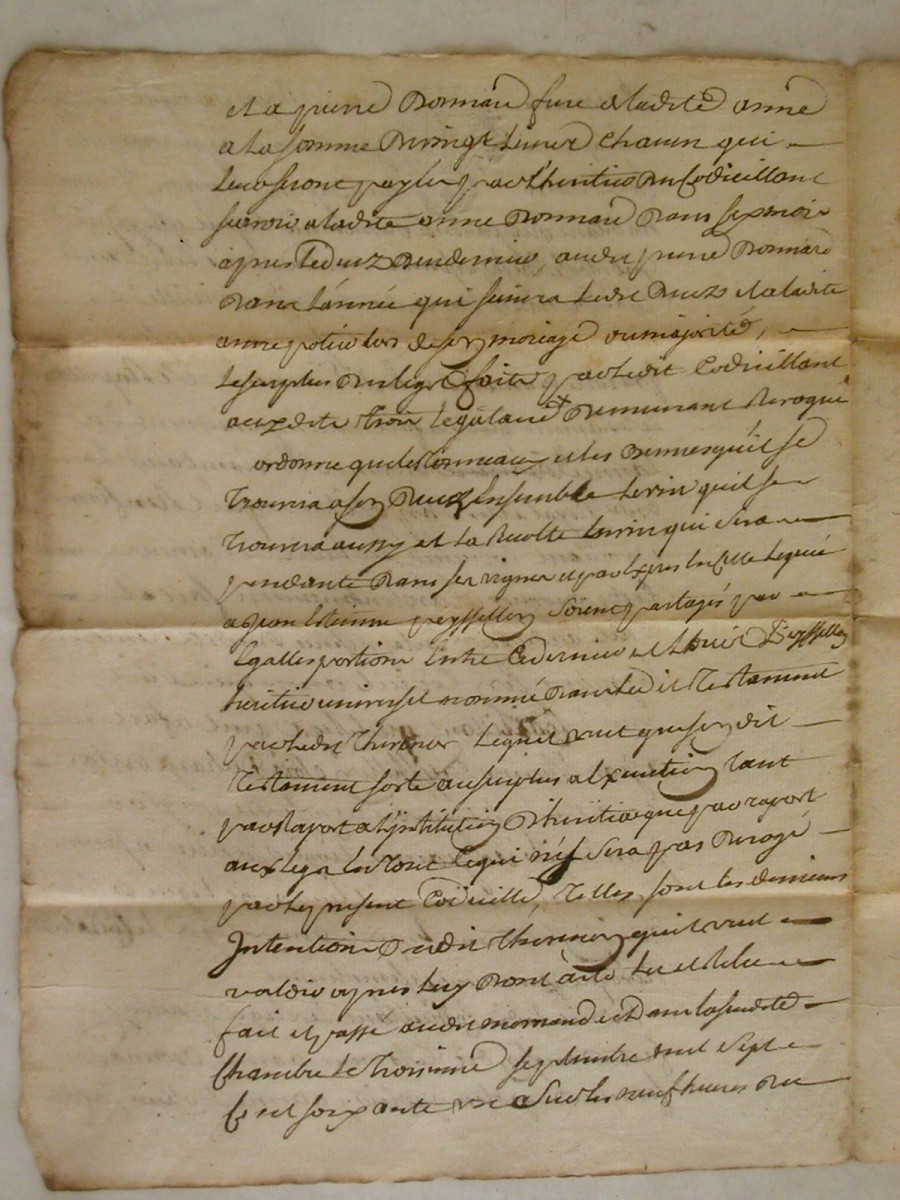 et a pierre Bonnard fixe et ladite anne
a la somme de vingt livres chacun qui
leur seront payées par l'heritier du Codicillant
scavoir a ladite anne Bonnard dans six mois
apres le decez du dernier, audit pierre Bonnard
dans l'année qui suivra ledit decez et a ladite
anne lors de son mariage ou majorité,
le surplus du legs fait par ledit Codicillant
auxdits trois legataires demeurant revoqué
ordonne que les tonneaux et les bennes qu'il se
trouvera a son decez ensemble le vin qu'il se
trouvera aussy et la Recolte en vin qui sera
pendante dans ses vignes et par expres en celle leguée
a Jean Etienne peyssellon soient partagés par
Egalles portions Entre ce dernier et Peyssellon
heritier universel nommé dans ledit Testament
par ledit Thevenon lequel veut que son dit
Testament sorte au surplus a Execution tant
par raport a l'jnstitution d'heritier que par raport
aux legs En tout ce qui n'est sera pas derogé
par le present Codicille, Telles sont les dernieres
Intentions dudit Thevenon qu'il veut
valoir apres luy dont acte Lu et Relu
fait et passé audit mornand et dans la susdite
Chambre le Troisieme septembre mil sept
Cent soixante une Sur les neuf heures du